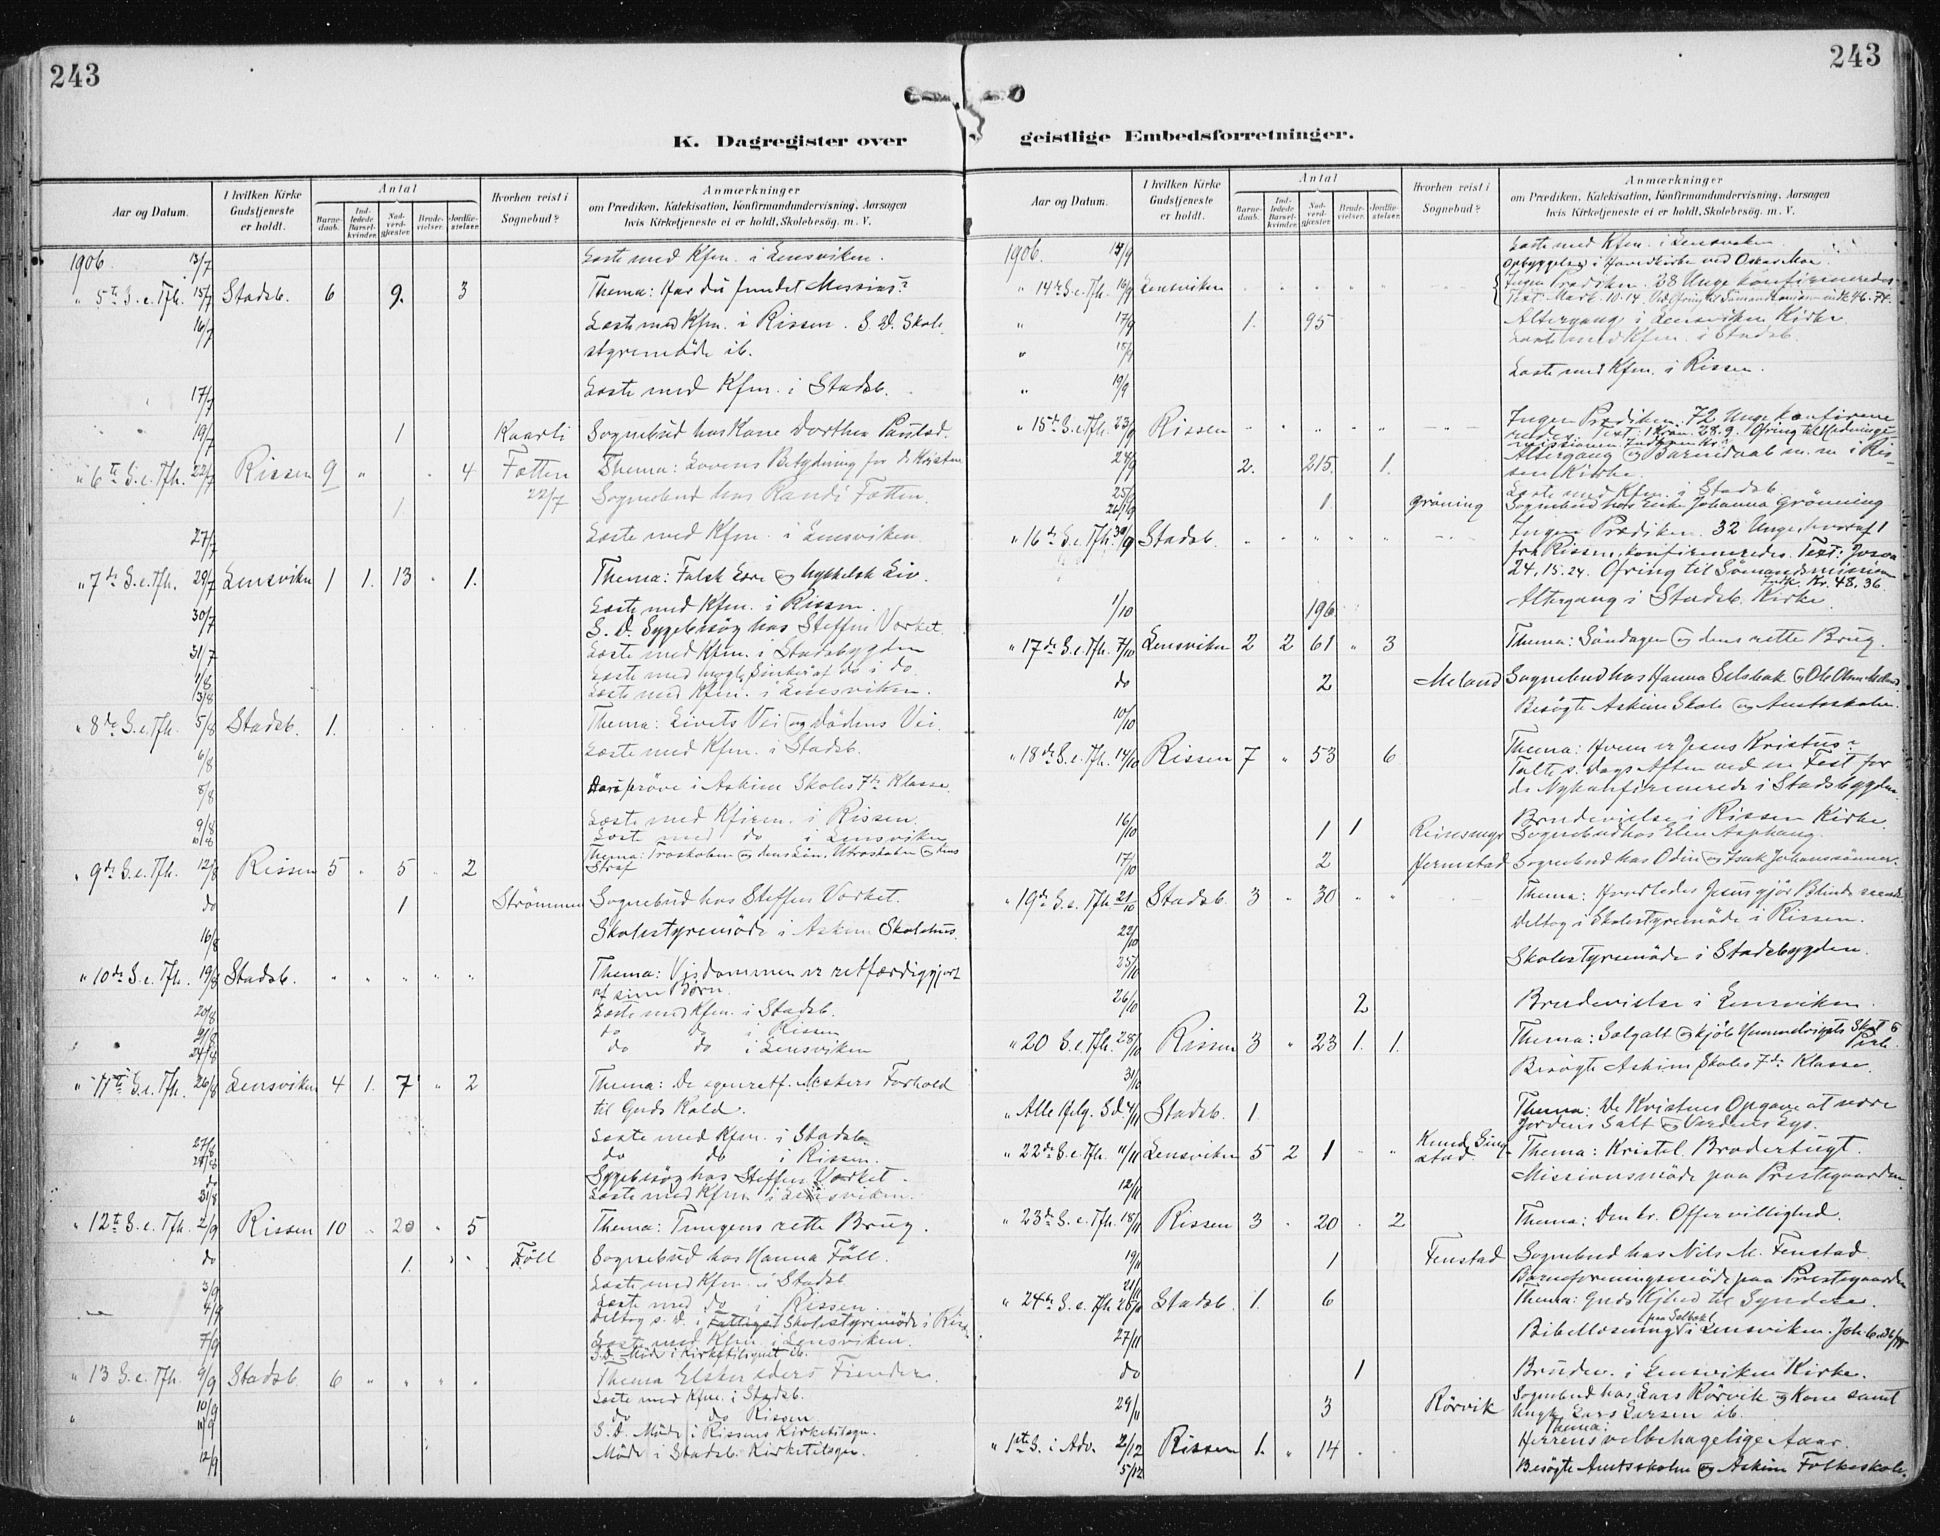 243
243
K. Dagregister over geistlige Embedsforretninger.
Aar og Datum.
I hvilken Kirke Gudstjeneste er holdt.
Antal
Barnedaab.
Indledede Barselkvinder.
Nadverdgjester.
Brudevielser.
Jordfæstelser.
Hvorhen reist i Sognebud?
Anmærkninger
om Prædiken, Katekisation, Konfirmandundervisning, Aarsagen
hvis Kirketjeneste ei er holdt, Skolebesög. m. V.
1906. 13/7 Læste med Kfm. i Lensviken.
" 5te S. e. Tfh. 15/7 Stadsb. 6 9. 3 Thema: Har du fundet Messias?
16/7 Læste med Kfm. i Rissen. S. D. Skole
styremøde ib.
17/7 Læste med Kfm. i Stadsb.
19/7 1 Sognebud hos Kone Dorthea
" 6te S. e. Tfh. 22/7 Rissen 9 " " 4 Fætten Thema: Lovens Betydning for de Kristne
1 22/7 Sognebud hos Randi Fætten.
27/7 Læste med Kfm. i Lensviken.
" 7de S. e. Tfh. 29/7 Lensviken 1 1. 13 " 1. Thema: Falsk Lære og hykkelsk Liv.
30/7 Læste med Kfm. i Rissen.
S. D. Sygebesøg hos Steffen Vorket.
31/7 Læste med Kfm. i Stadsbygden
1/8 Læste med do i do
3/8 Læste med Kfm. i Lensviken.
" 8de S. e. Tfh. 5/8 Stadsb. 1. Thema: Livets Vei og Dødens Vei.
6/8 Læste med Kfm. i Stadsb.
8/8 Aarsprøve i Askim Skoles 7de Klasse.
9/8 Læste med Kfirm. i Rissen.
10/8 Læste med do i Lensviken
" 9de S. e. Tfh. 12/8 Rissen 5 " 5 " 2 Thema: Troskaben og dens Løn, Utroskaben og dens
Straf
do 1 Strømmen Sognebud hos Steffen Vorket.
16/8 Skolestyremøde i Askim Skolehus.
" 10de S. e. Tfh. 19/8 Stadsb. " " " " " Thema: Visdommen er retfærdiggjort
af sine Børn.
20/8 Læste med Kfm. i Stadsb.
21/8 do do i Rissen
24/8 do do i Lensviken
" 11te S. e. Tfh. 26/8 Lensviken 4 1. 7 " 2 Thema: De egenretf. Mesters Forhold
til Guds Kald.
27/8 Læste med Kfm. i Stadsb.
28/8 do do i Rissen.
do Sygebesøg hos Steffen Vorket.
31/8 Læste med Kfm. i Lensviken.
" 12te S. e. Tfh. 2/9 Rissen 10 " 20 " 5 Thema: Tungens rette Brug.
do 1. Føll Sognebud hos Hanna Føll.
3/9 Læste med Kfm. i Stadsb.
4/9 Læste med do i Rissen.
Deltog s. D. i Skolestyremøde i
7/9 Læste med Kfm. i Lensviken.
S.D. Møde i Kirketilsynet ib.
" 13 S. e. Tfh. 9/9 Stadsb. 6 " " " " Thema Elsker eders Fiender.
10/9 Læste med Kfm. i Stadsb.
" 11/9 do do Rissen
S. D. Møde i Rissens Kirketilsyn.
12/9 Møde i Stadsb. Kirketilsyn.
Aar og Datum.
I hvilken Kirke Gudstjeneste er holdt.
Antal
Barnedaab.
Indledede Barselkvinder.
Nadverdgjester.
Brudevielser.
Jordfæstelser.
Hvorhen reist i Sognebud?
Anmærkninger
om Prædiken, Katekisation, Konfirmandundervisning, Aarsagen
hvis Kirketjeneste ei er holdt, Skolebesög. m. V.
1906. 14/9 Læste med Kfm. i Lensviken.
Opbyggelse i Hovedkirke ved Oskar Moe.
" 14de S. e. Tfh. 16/9 Lensviken " " " " " Ingen Prædiken. 28 Unge konfirmeredes
Text Mark. 10.14.
" 17/9 1. 95 Altergang i Lensviken Kirke.
" 18/9 Læste med Kfm. i Stadsb.
" 19/9 Læste med Kfm. i Rissen.
" 15de S. e. Tfh. 23/9 Rissen " " " " " Ingen Prædiken. 72 Unge konfirme
redes. Text: 1 Krøn. 28.9. Ofring til Hedninge
missionen.
24/9 2. 215. 1. Altergang og Barnedaab m. m. i Ris-
sen Kirke.
25/9 Læste med Kfm. i Stadsb.
26/9 1. Grøning Sognebud hos Enke Johanna Grønning
" 16de S. e. Tfh. 30/9 Stadsb. " " " " " Ingen Prædiken. 32 Unge, hvoraf 1
fra Rissen, konfirmeredes. Text: Josva
24, 15.24. Ofring til Sømandsmission
Indk. Kr. 48.36.
1/10 196. Altergang i Stadsb. Kirke.
" 17de S. e. Tfh. 7/10 Lensviken 2 2 61 " 3 Thema: Søndagen og dens rette Brug.
do 2 Meland Sognebud hos Hanna Selsbak og Ole Olsen Meland.
10/10 Besøgte Askim Skole og Amtsskolen.
" 18de S. e. Tfh. 14/10 Rissen 7 " 53 6 Thema: Hvem er Jesus Kristus?
Talte s. Dags Aften ved en Fest for
de Nykonfirmerede i Stadsbygden.
16/10 1 1 Reinsmyr Brudevielse i Rissen Kirke.
Sognebud hos Elen Asphaug.
17/10 2 Hermstad Sognebud hos Odin og Isak Johanssønner.
" 19de S. e. Tfh. 21/10 Stadsb. 3 " 30 " " Thema: Hvorledes Jesus gjør Blinde seende
22/10 Deltog i Skolestyremøde i Rissen.
25/10 Skolestyremøde i Stadsbygden.
26/10 2 Brudevielse i Lensviken.
" 20 S. e. Tfh. 28/10 Rissen 3 " 23 1. 1. Thema: Salgalt og kjøb Himmelrigets Skat &
Perle.
31/10 Besøgte Askim Skoles 7de Klasse.
" Alle Helg. S d. 4/11 Stadsb. 1. Thema: De Kristnes Opgave at være
Jordens Salt og Verdens Lys.
" 22de S. e. Tfh. 11/11 Lensviken 5 2 1 " " Thema: Kristel. Brodertugt.
12/11 Missionsmøde paa Prestegaarden.
" 23de S. e. Tfh. 18/11 Rissen 3 " 20 " 2 Thema: Den kr. Offervillighed.
19/11 1 Fenstad Sognebud hos Nils M. Fenstad.
21/11 Barneforeningsmøde paa Prestegaarden
" 24de S. e. Tfh. 25/11 Stadsb. 1. 6 Thema: Guds Kjhed til Syndere.
27/11 Bibellæsning paa Selbekk i Lensviken.
do 1 Brudev. i Lensviken Kirke.
29/11 3 Rørvik Sognebud hos Lars Rørvik og Kone samt
Ungk. Lars Larsen ib.
" 1ste S. i Adv. 2/12 Rissen 1. " 14 Thema:
Herrens velbehagelige Aar.
5/12 Besøgte Amtsskolen og Askim Folkeskole.